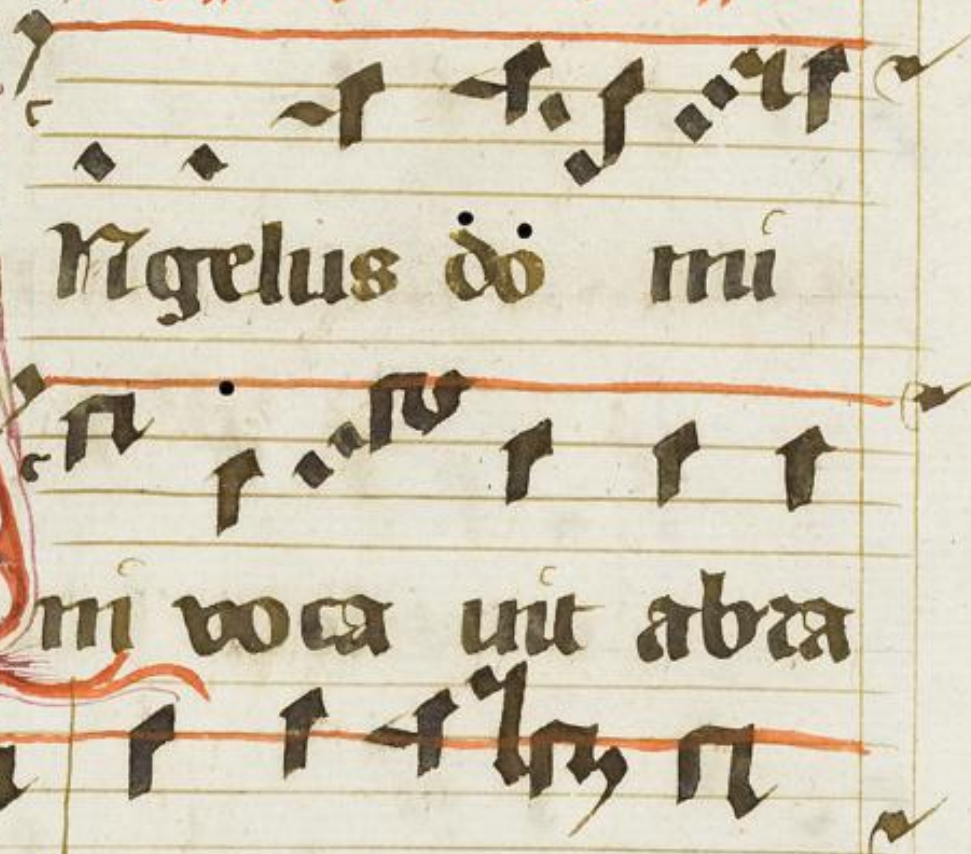 Ngelus do mi
ni voca uit abra